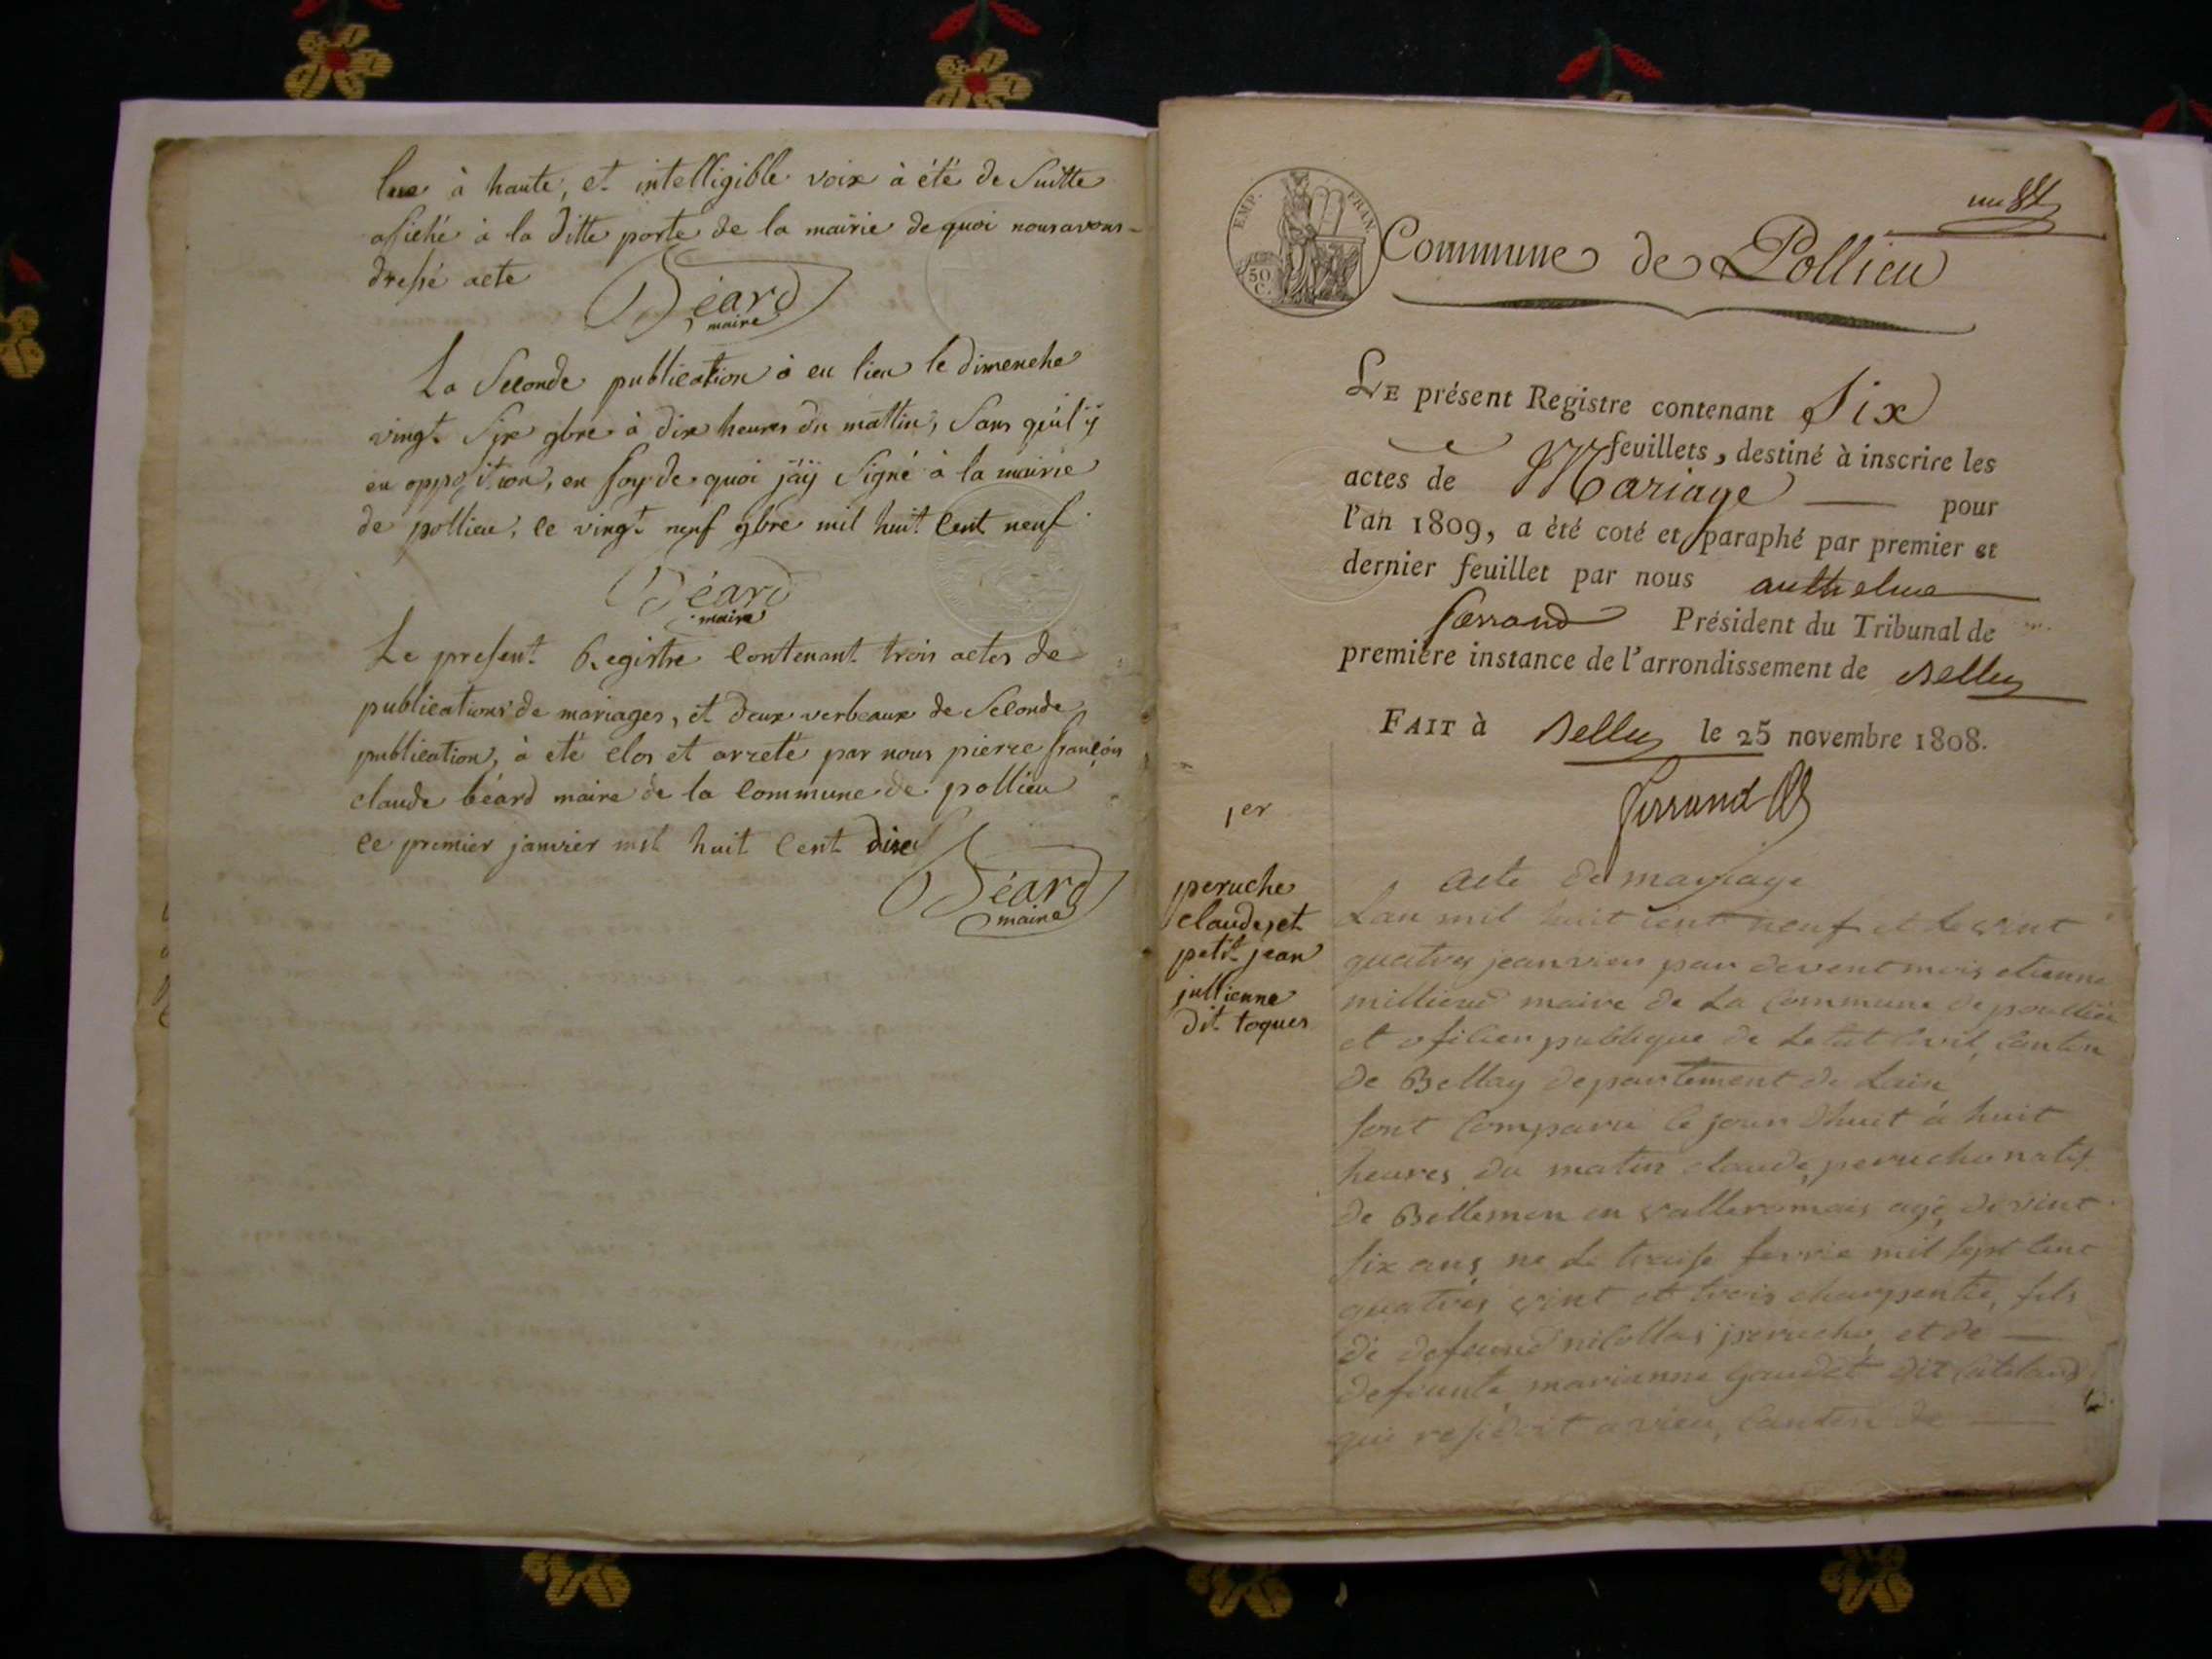 lue à haute, et intelligible voix à été de Suitte
afiché à la ditte porte de la mairie de quoi nous avons
dressé acte
Béard
maire
La Seconde publication à eu lieu le dimenche
vingt Six 9bre à dix heures du mattin, Sans qu'il ÿ
eu opposition, en foy de quoi j'aÿ Signé à la mairie
de pollieu, ce vingt neuf 9bre mil huit Cent neuf
Béard
maire
Le present Registre Contenant trois actes de
publications de mariages, et deux verbeaux de Seconde
publication, à eté clos et arreté par nous pierre françois
claude béard maire de la Commune de pollieu
ce premier janvier mil huit Cent dix
Béard
maire
EMP. FRAN.
50 C.
Commune de Pollieu
LE présent Registre contenant Six
feuillets, destiné à inscrire les
actes de Mariage pour
l'an 1809, a été coté et paraphé par premier et
dernier feuillet par nous anthelme
ferrand Président du Tribunal de
première instance de l'arrondissement de Belley
FAIT à Belley le 25 novembre 1808.
Ferrand
1er
peruche
claude, et
petit jean
jullienne
dit toques
acte de mariage
Lan mil huit cent neuf et le vint
quatres jeanvier par devent mois etienne
millieud maire de La Commune de poullieu
et ofilier publique de Letat Civil, Canton
de Bellay departement de Lain
Sont Comparu ce jour dhuit à huit
heures du matin claude peruche natif
de Bellemon en valleromais agé de vint
Six ans ne Le traise fevrié mil Sept Cent
quatres vint et trois charpentie, fils
de defeund nicollas peruche et de
defeunte marianne gaudet dit
qui residoit a vieu, Canton de